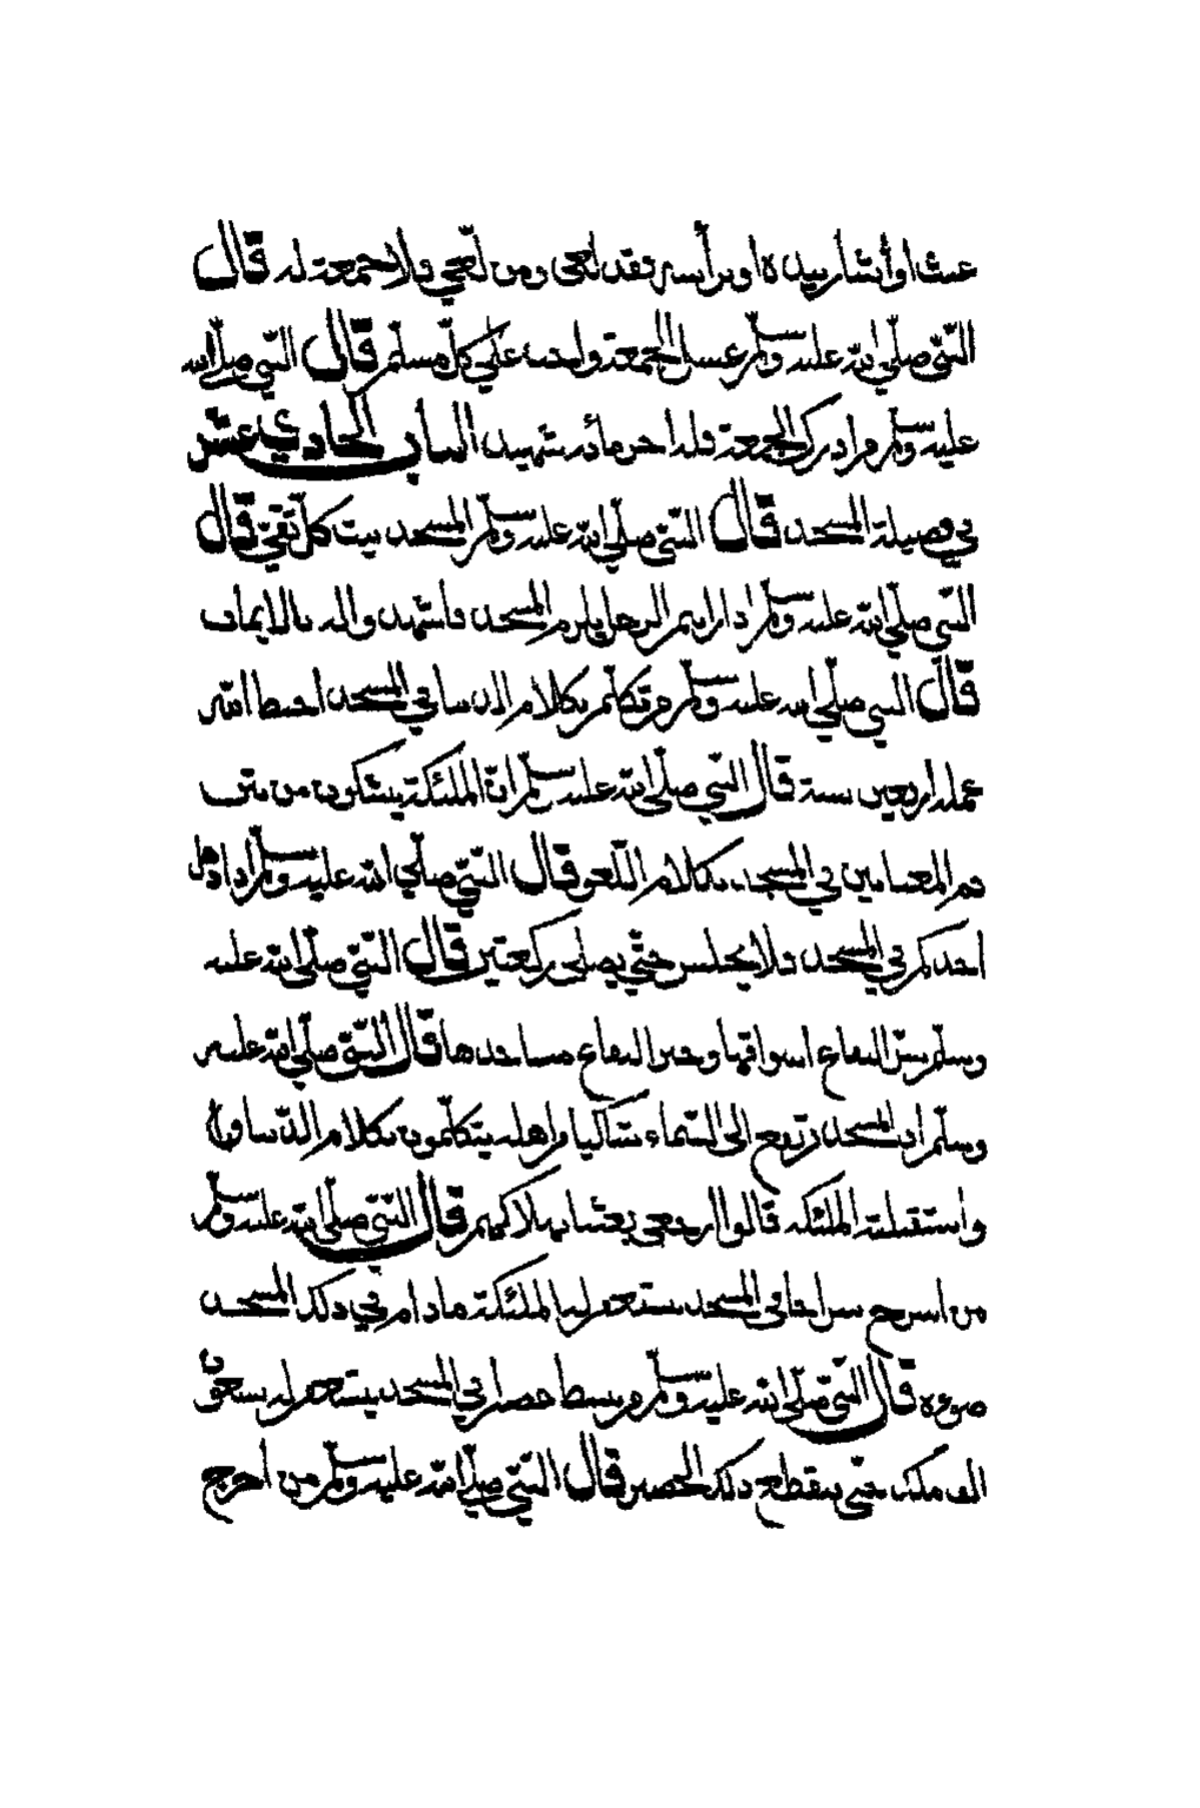 عبث او أشار بيده او برأسه فقد لغى ومن لغي فلا جمعة له قال
النّبيّ صلّي الله عليه وسلّم غسل الجمعة واجب علي كلّ مسلم قال النّبي صلّي الله
عليه وسلّم من ادرك الجمعة فله اجر مائة شهيد الباب الحادي عشر
في فضيلة المسجد قال النّبيّ صلّي الله عليه وسلّم المسجد بيت كلّ تقيّ قال
النّبي صلّي الله عليه وسلّم اذا رايتم الرجل يلزم المسجد فاشهدوا له بالايمان
قال النّبي صلّي الله عليه وسلّم من تكلّم بكلام الدنيا في المسجد احبط الله
عمله أربعين سنة قال النّبي صلّى الله عليه وسلّم انّ الملئكة يشكون من نتن
فم المغتابين في المسجد بكلام اللّغو قال النّبيّ صلّي الله عليه وسلّم اذا دخل
احدكم في المسجد فلا يجلس حتّي يصلى ركعتين قال النّبيّ صلّى الله عليه
وسلّم شرّ البقاع اسواقها وخير البقاع مساجدها قال النّبيّ صلّي الله عليه
وسلّم ان المسجد ترتفع الى السّماء شاكيا من اهله يتكلّمون بكلام الدّنيا
واستقبلته الملئكة قالوا ارجعي بعثنا بهلاكهم قال النّبيّ صلّي الله عليه وسلّم
من اسرج سراجا في المسجد يستغفر له الملئكة ما دام في ذلك المسجد
ضوءه قال النّبيّ صلّى الله عليه وسلّم من بسط حصيرا في المسجد يستغفر له سبعون
الف ملك حتّي ينقطع ذلك الحصير قال النّبيّ صلّي الله عليه وسلّم من اخرج